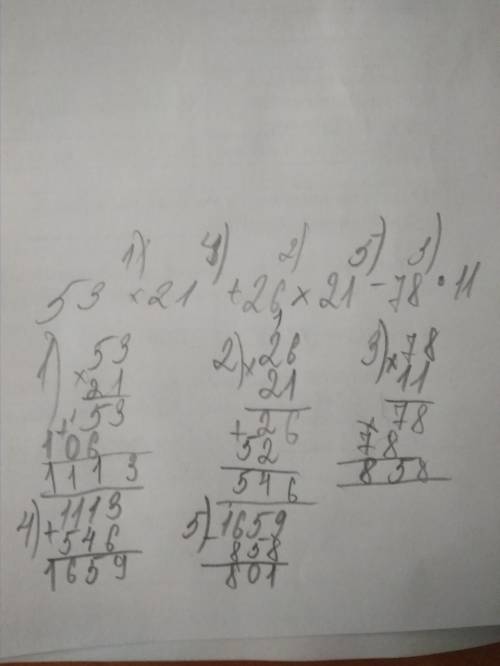 1) 4) 2) 5) 3)
53 × 21 + 26 × 21 - 78 · 11
1) × 53
21
+ 53
106
1113
2) 1
× 26
21
+ 26
52
546
3) × 78
11
+ 78
78
858
4) + 1113
546
1659
5) - 1659
858
801